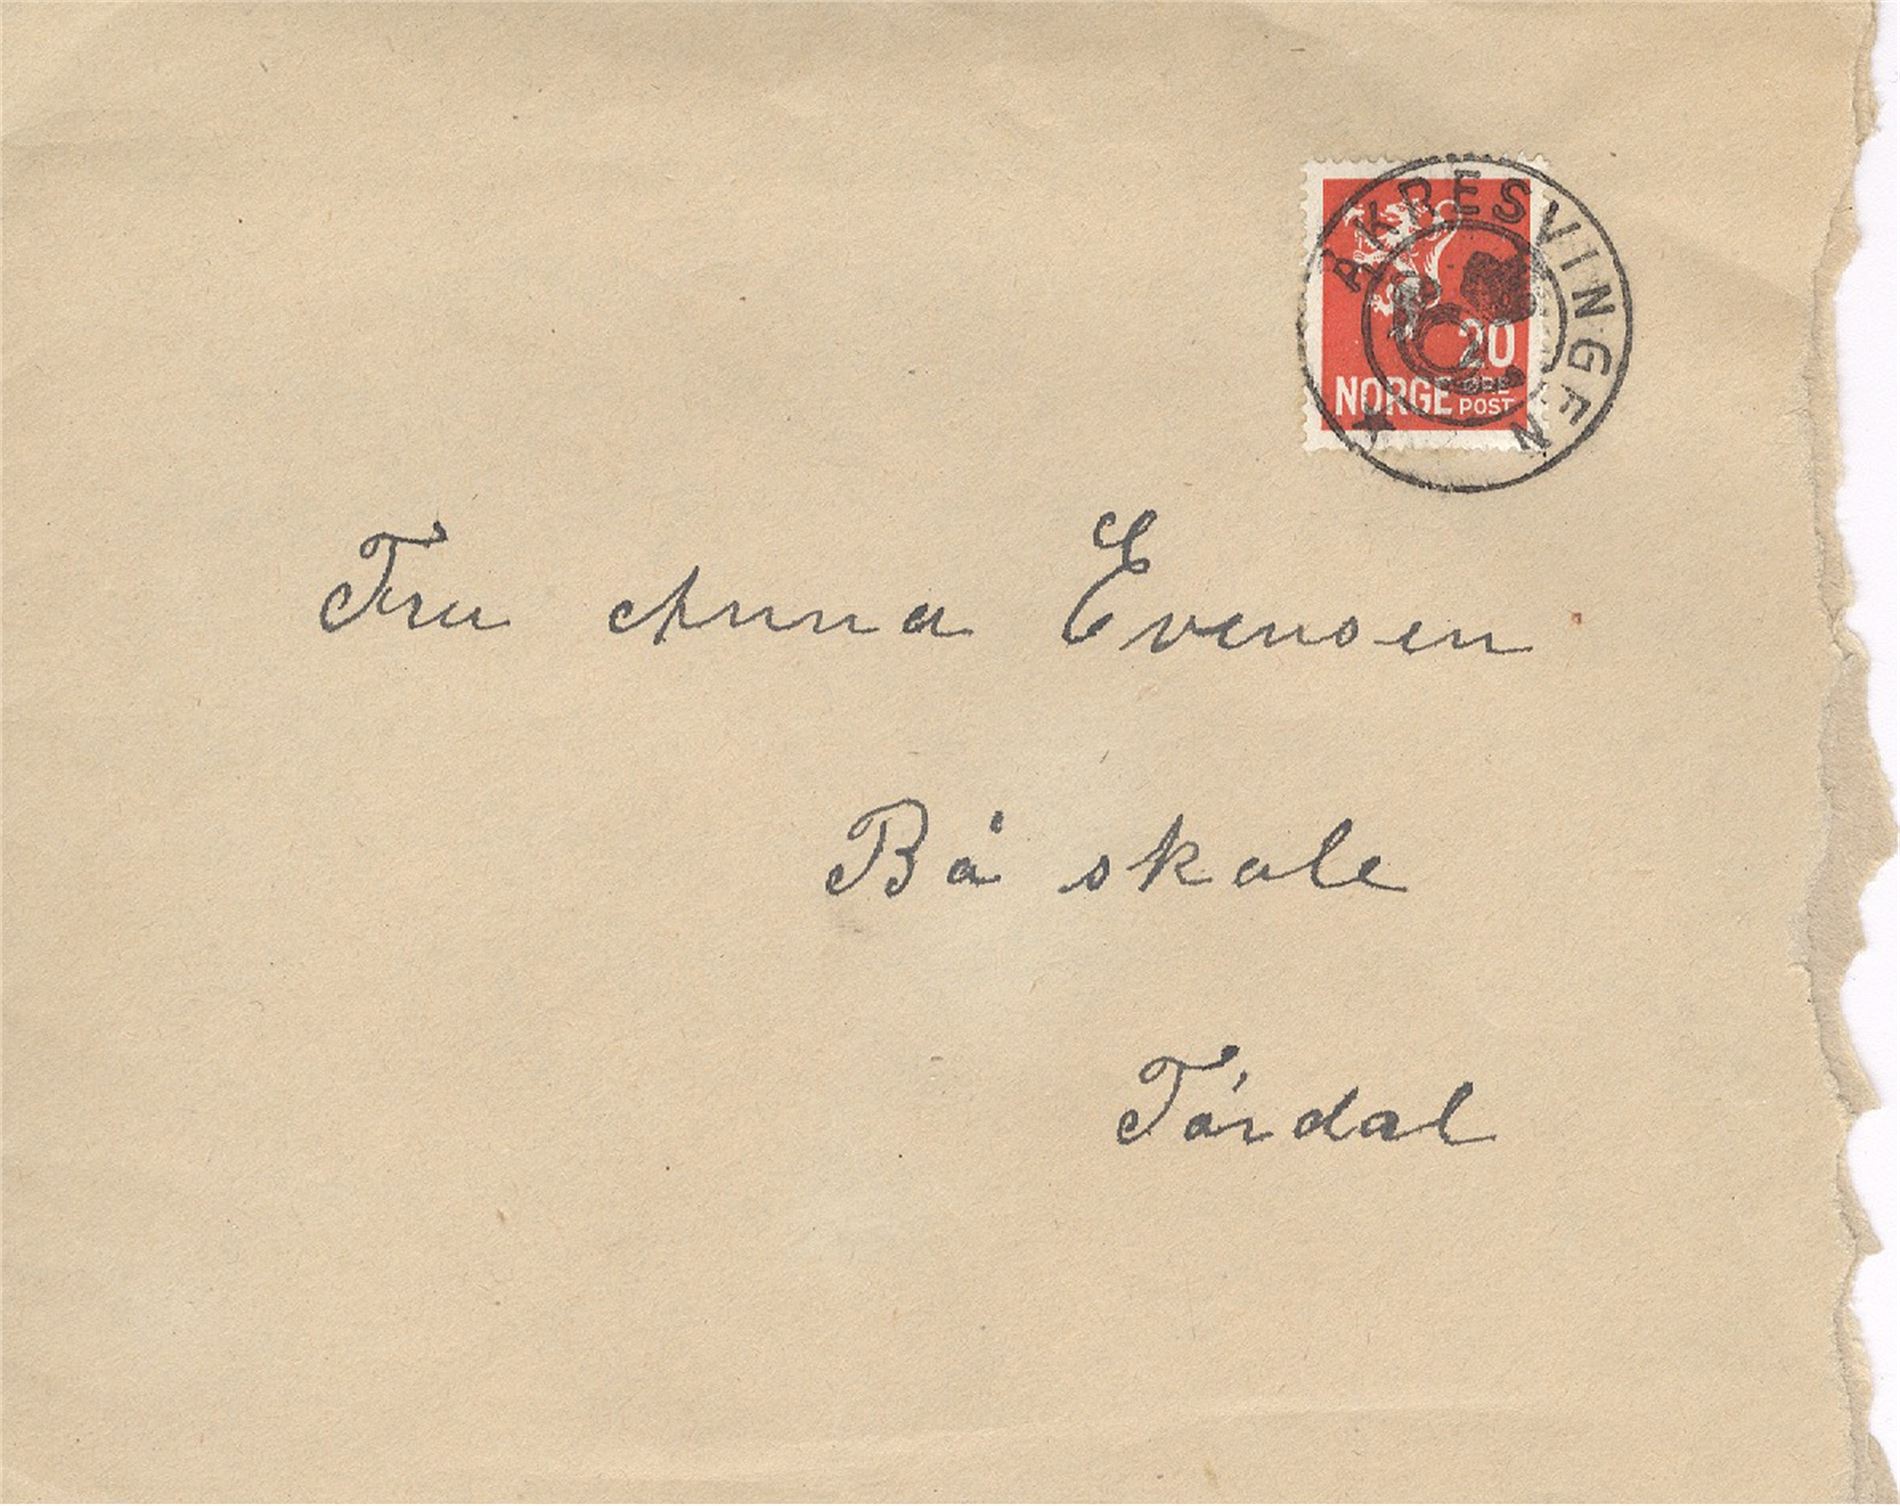 AKRESVINGEN
20
NORGE ØRE
POST
Fru Anna Evensen
Bó skole
Tórdal